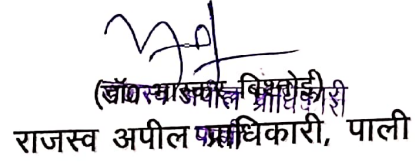 (डॉ० भास्कर बिश्नोई)
राजस्व अपील प्राधिकारी
राजस्व अपील प्राधिकारी, पाली
पाली